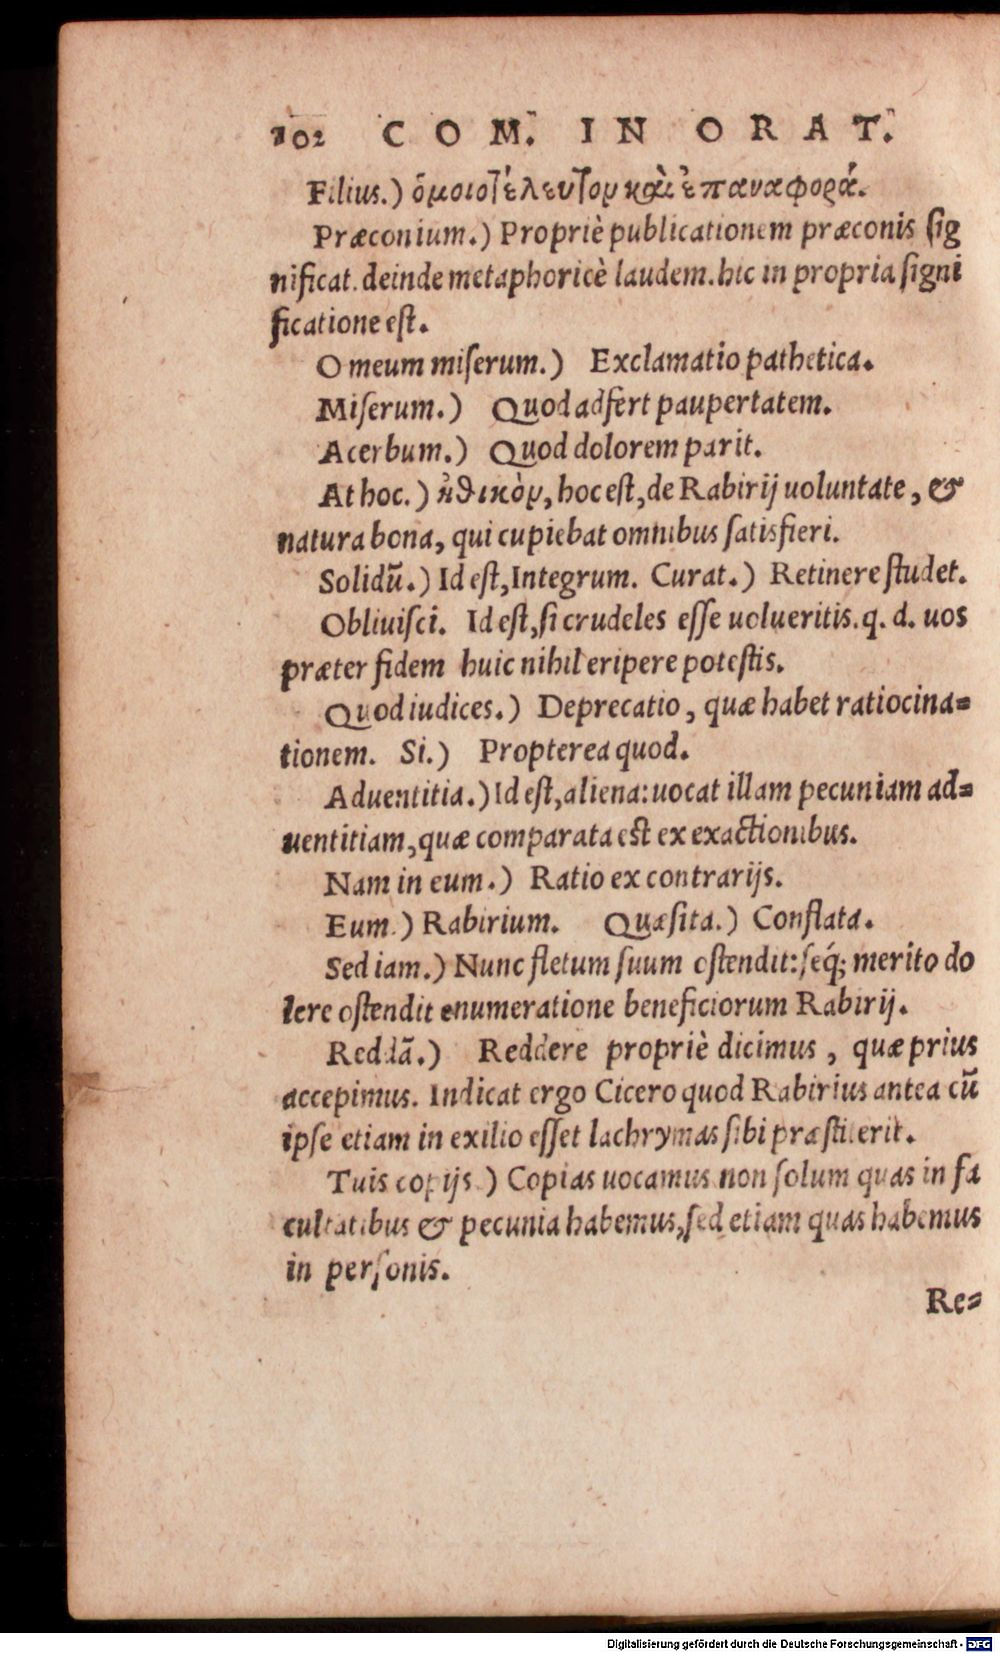 102 COM. IN ORAT.
Filius.) ὁμοιοτέλευτον καὶ ἐπαναφορά.
Præconium.) Propriè publicationem præconis ſig
nificat. deinde metaphoricè laudem. hic in propria ſigni
ficatione eſt.
O meum miſerum.) Exclamatio pathetica.
Miſerum.) Quod adfert paupertatem.
Acerbum.) Quod dolorem parit.
At hoc.) ἠθικὸν, hoc eſt, de Rabirij uoluntate, &
natura bona, qui cupiebat omnibus ſatisfieri.
Solidū.) Id eſt, Integrum. Curat.) Retinere ſtudet.
Obliuiſci. Id eſt, ſi crudeles eſſe uolueritis. q. d. uos
præter fidem huic nihil eripere poteſtis.
Quod iudices.) Deprecatio, quæ habet ratiocina=
tionem. Si.) Propterea quod.
Aduentitia.) Id eſt, aliena: uocat illam pecuniam ad=
uentitiam, quæ comparata eſt ex exactionibus.
Nam in eum.) Ratio ex contrarijs.
Eum.) Rabirium. Quæſita.) Conflata.
Sed iam.) Nunc fletum ſuum oſtendit: ſeq́; merito do
lere oſtendit enumeratione beneficiorum Rabirij.
Reddā.) Reddere propriè dicimus, quæ prius
accepimus. Indicat ergo Cicero quod Rabirius antea cū
ipſe etiam in exilio eſſet lachrymas ſibi præſtiterit.
Tuis copijs.) Copias uocamus non ſolum quas in fa
cultatibus & pecunia habemus, ſed etiam quas habemus
in perſonis.
Re=
Digitalisierung gefördert durch die Deutsche Forschungsgemeinschaft - DFG